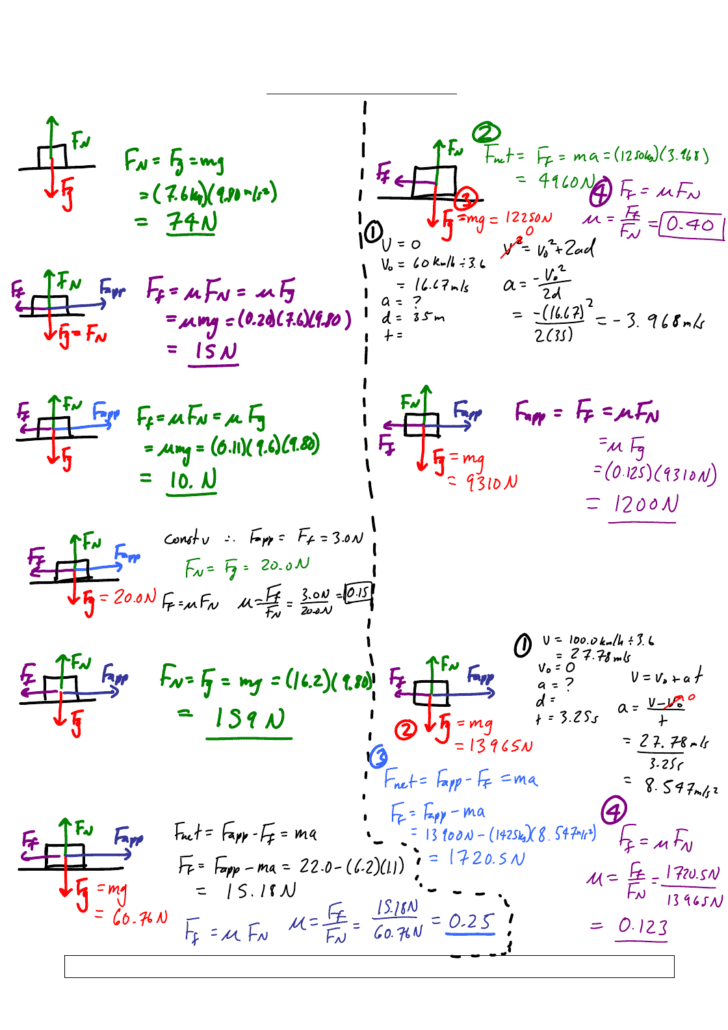 F_N
F_g
F_N = F_g = mg
= (7.6kg)(9.80 m/s²)
= 74N
F_f F_N F_app
F_g = F_N
F_f = μF_N = μF_g
= μmg = (0.20)(7.6)(9.80)
= 15N
F_f F_N F_app
F_g
F_f = μF_N = μF_g
= μmg = (0.11)(9.6)(9.80)
= 10. N
F_f F_N F_app
F_g = 20.0N
const v ∴ F_app = F_f = 3.0N
F_N = F_g = 20.0N
F_f = μF_N μ = F_f/F_N = 3.0N/20.0N = 0.15
F_f F_N F_app
F_g
F_N = F_g = mg = (16.2)(9.80)
= 159N
F_f F_N F_app
F_g = mg
= 60.76N
F_net = F_app - F_f = ma
F_f = F_app - ma = 22.0 - (6.2)(1.1)
= 15.18N
F_f = μF_N μ = F_f/F_N = 15.18N/60.76N = 0.25
F_f F_N
② F_net = F_f = ma = (1250kg)(3.968)
= 4960N
③ F_g = mg = 12250N
④ F_f = μF_N
μ = F_f/F_N = 0.40
① v = 0
v₀ = 60km/h ÷ 3.6
= 16.67m/s
a = ?
d = 35m
t =
v² 0 = v₀² + 2ad
a = -v₀²/2d
= -(16.67)²/2(35) = -3.968m/s
F_N F_app
F_f
F_g = mg
= 9310N
F_app = F_f = μF_N
= μF_g
= (0.125)(9310N)
= 1200N
① v = 100.0km/h ÷ 3.6
= 27.78m/s
v₀ = 0
a = ?
d =
t = 3.25s
v = v₀ + at
a = v-v₀ 0/t
= 27.78m/s/3.25s
= 8.547m/s²
F_f F_N F_app
② F_g = mg
= 13965N
③
F_net = F_app - F_f = ma
F_f = F_app - ma
= 13900N - (1425kg)(8.547m/s²)
= 1720.5N
④
F_f = μF_N
μ = F_f/F_N = 1720.5N/13965N
= 0.123